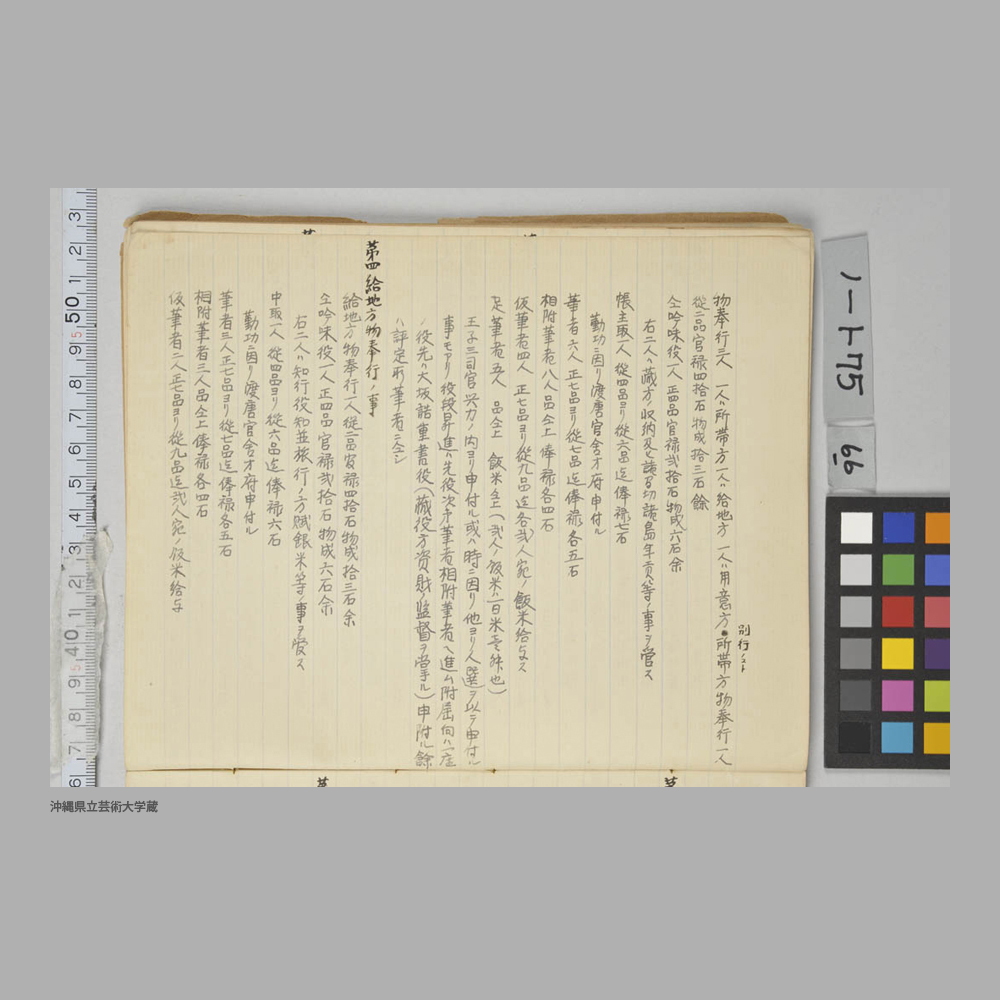 別行ノコト
物奉行三人 一人ハ所帯方一人ハ給地方 一人ハ用意方・所帯方物奉行一人
従二品官禄四拾石物成拾三石餘
仝吟味役一人正四品官禄弐拾石物成六石余
右二人ハ蔵方ノ収納及諸切諸島年貢等ノ事ヲ管ス
帳主取一人 従四品ヨリ従六品迄俸禄七石
勤功ニ因リ渡唐官舎才府申付ル
筆者六人 正七品ヨリ従七品迄俸禄各五石
相附筆者八人品仝上 俸禄各四石
仮筆者四人 正七品ヨリ従九品迄各弐人宛ノ飯米給与ス
足筆者五人 品仝上 飯米仝上(弐人ノ飯米ハ一日米壱舛也)
王子三司官与力ノ内ヨリ申付ル或ハ時ニ因リ他ヨリ人選ヲ以テ申付ル
事モアリ役段昇進ハ先役次才筆者相附筆者ヘ進ム附届向ハ一座
ノ役先ハ大坂詰重書役(蔵役方資財ノ監督ヲ掌ル)申付ル餘
ハ評定所筆者ニ仝シ
第四給地方物奉行ノ事
給地方物奉行一人従二品官禄四拾石物成拾三石余
仝吟味役一人正四品官禄弐拾石物成六石余
右二人ハ知行役知並旅行ノ方賦銀米等ノ事ヲ管ス
中取一人 従四品ヨリ従六品迄 俸禄六石
勤功ニ因リ渡唐官舎才府申付ル
筆者三人正七品ヨリ従七品迄俸禄各五石
相附筆者三人品仝上 俸禄各四石
仮筆者二人正七品ヨリ従九品迄弐人宛ノ飯米給与
ノート75
66
沖縄県立芸術大学蔵